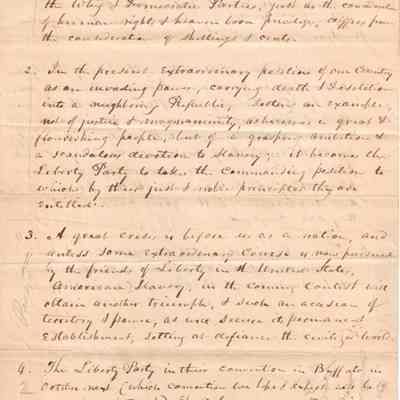 the Whig & Democratic Parties, just as the cause
of human rights & heaven born privilege, differs from
the consideration of shillings & cents.
2. In the present extraordinary position of our Country
as an invading power, carrying death & desolation
into a neighboring Republic, setting an example,
not of justice & magnanimity, as becomes a great &
flourishing people, but of a grasping ambition &
a scandalous devotion to Slavery – it becomes the
Liberty Party to take the commanding position to
which by their just & noble principles they are
entitled.
3. A great crisis is before us as a nation, and
unless some extraordinary course is now pursued
by the friends of Liberty in the United States,
American Slavery, in the coming contest will
obtain another triumph, & such an accession of
territory & power, as will secure its permanent
Establishment, setting at defiance the civilized world.
4. The Liberty Party in their convention in Buffalo in
October next (which convention we hope & expect will be